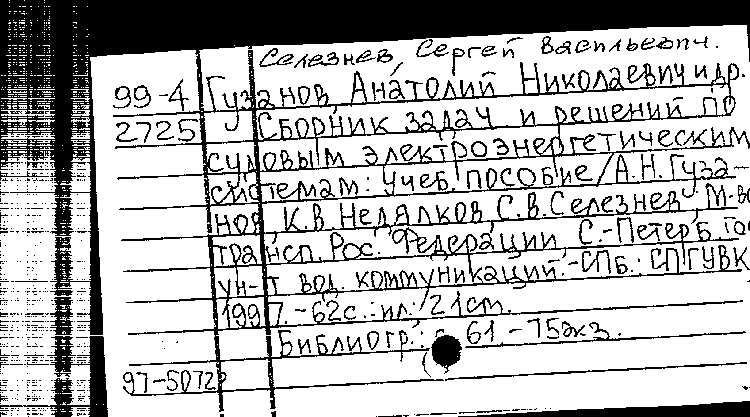 Селезнев, Сергей Васильевич.
99-4 Гузанов, Анатолий Николаевич и др.
2725 Сборник задач и решений по
судовым электроэнергетическим
системам: Учеб. пособие/А.Н.Гуза-
нов, К.В.Недялков, С.В.Селезнев; М-во
трансп. Рос. Федерации, С.-Петерб. гос.
ун-т вод. коммуникаций.-СПб.: СПГУВК,
1997.-62с.:ил.; 21см.
Библиогр.: с. 61.-75экз.
97-50722